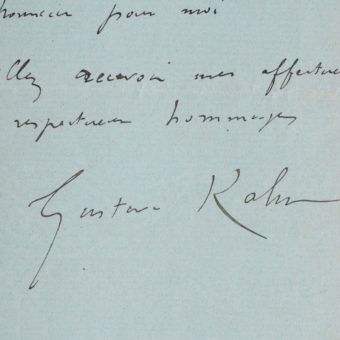 honneur pour moi
llez recevoir mes affectueu
respectueux hommages
Gustave Kahn